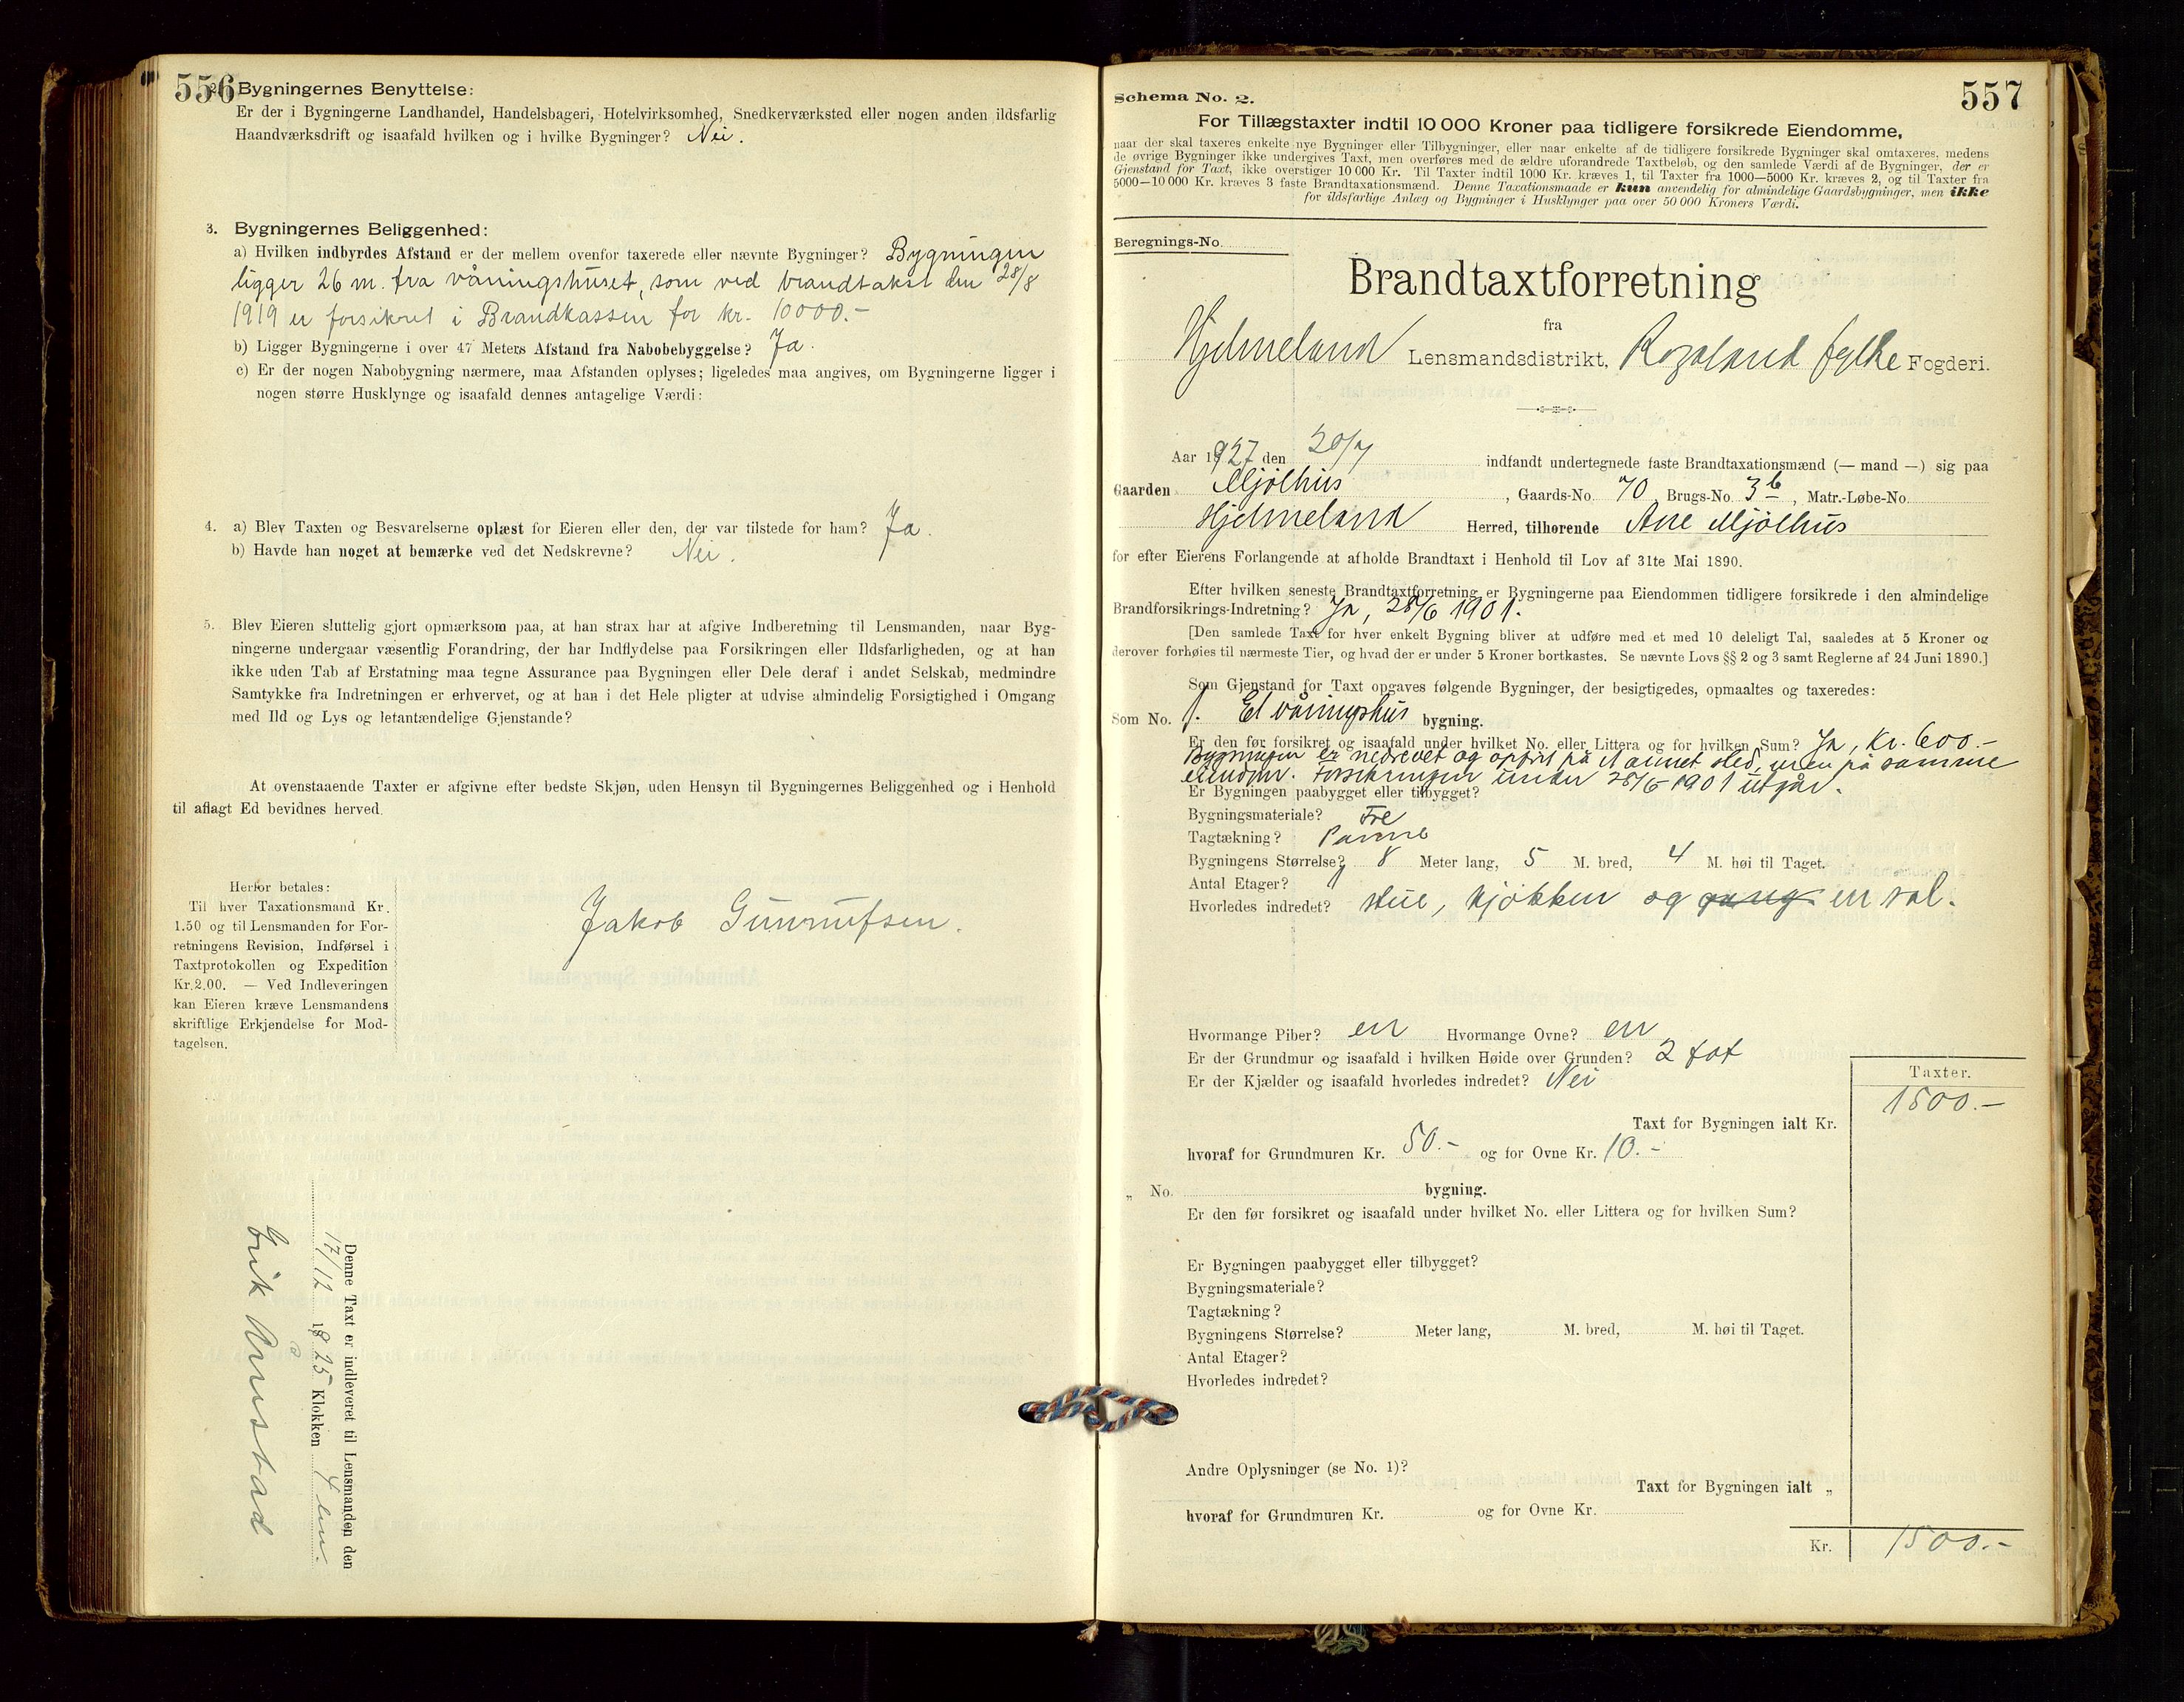 556
2. Bygningernes Benyttelse:
Er der i Bygningerne Landhandel, Handelsbageri, Hotelvirksomhed, Snedkerværksted eller nogen anden ildsfarlig
Haandværksdrift og isaafald hvilken og i hvilke Bygninger? Nei.
3. Bygningernes Beliggenhed:
a) Hvilken indbyrdes Afstand er der mellem ovenfor taxerede eller nævnte Bygninger? Bygningen
ligger 26 m. fra våningshuset, som ved brandtakst den 28/8
1919 er forsikret i Brandkassen for kr. 10000.-
b) Ligger Bygningerne i over 47 Meters Afstand fra Nabobebyggelse? Ja.
c) Er der nogen Nabobygning nærmere, maa Afstanden oplyses; ligeledes maa angives, om Bygningerne ligger i
nogen større Husklynge og isaafald dennes antagelige Værdi:
4. a) Blev Taxten og Besvarelserne oplæst for Eieren eller den, der var tilstede for ham? Ja.
b) Havde han noget at bemærke ved det Nedskrevne? Nei.
5. Blev Eieren sluttelig gjort opmærksom paa, at han strax har at afgive Indberetning til Lensmanden, naar Byg-
ningerne undergaar væsentlig Forandring, der har Indflydelse paa Forsikringen eller Ildsfarligheden, og at han
ikke uden Tab af Erstatning maa tegne Assurance paa Bygningen eller Dele deraf i andet Selskab, medmindre
Samtykke fra Indretningen er erhvervet, og at han i det Hele pligter at udvise almindelig Forsigtighed i Omgang
med Ild og Lys og letantændelige Gjenstande?
At ovenstaaende Taxter er afgivne efter bedste Skjøn, uden Hensyn til Bygningernes Beliggenhed og i Henhold
til aflagt Ed bevidnes herved.
Jakob
Herfor betales:
Til hver Taxationsmand Kr.
1.50 og til Lensmanden for For-
retningens Revision, Indførsel i
Taxtprotokollen og Expedition
Kr. 2.00. — Ved Indleveringen
kan Eieren kræve Lensmandens
skriftlige Erkjendelse for Mod-
tagelsen.
Denne Taxt er indleveret til Lensmanden den
17/12 1925 Klokken 4 em.
557
Schema No. 2.
For Tillægstaxter indtil 10 000 Kroner paa tidligere forsikrede Eiendomme,
naar der skal taxeres enkelte nye Bygninger eller Tilbygninger, eller naar enkelte af de tidligere forsikrede Bygninger skal omtaxeres, medens
de øvrige Bygninger ikke undergives Taxt, men overføres med de ældre uforandrede Taxtbeløb, og den samlede Værdi af de Bygninger, der er
Gjenstand for Taxt, ikke overstiger 10 000 Kr. Til Taxter indtil 1000 Kr. kræves 1, til Taxter fra 1000—5000 Kr. kræves 2, og til Taxter fra
5000—10 000 Kr. kræves 3 faste Brandtaxationsmænd. Denne Taxationsmaade er kun anvendelig for almindelige Gaardsbygninger, men ikke
for ildsfarlige Anlæg og Bygninger i Husklynger paa over 50 000 Kroners Værdi.
Beregnings-No.
Brandtaxtforretning
fra
Hjelmeland Lensmandsdistrikt, Rogaland fylke Fogderi.
Aar 1927 den 20/7 indfandt undertegnede faste Brandtaxationsmænd (— mand —) sig paa
Gaarden Mjølhus, Gaards-No. 70, Brugs-No. 3 b, Matr.-Løbe-No.
Hjelmeland Herred, tilhørende Ane Mjølhus
for efter Eierens Forlangende at afholde Brandtaxt i Henhold til Lov af 31te Mai 1890.
Efter hvilken seneste Brandtaxtforretning er Bygningerne paa Eiendommen tidligere forsikrede i den almindelige
Brandforsikrings-Indretning? Ja, 28/6 1901.
[Den samlede Taxt for hver enkelt Bygning bliver at udføre med et med 10 deleligt Tal, saaledes at 5 Kroner og
derover forhøies til nærmeste Tier, og hvad der er under 5 Kroner bortkastes. Se nævnte Lovs §§ 2 og 3 samt Reglerne af 24 Juni 1890.]
Som Gjenstand for Taxt opgaves følgende Bygninger, der besigtigedes, opmaaltes og taxeredes:
Som No. 1. Et våningshus bygning.
Er den før forsikret og isaafald under hvilket No. eller Littera og for hvilken Sum? Ja, kr. 600.-
Bygningen er nedrevet og opført på et annet sted, men på samme
eiendom. Forsikringen under 28/6 1901 utgår.
Er Bygningen paabygget eller tilbygget?
Bygningsmateriale? Tre
Tagtækning? Panne
Bygningens Størrelse? 8 Meter lang, 5 M. bred, 4 M. høi til Taget.
Antal Etager?
Hvorledes indredet? stue, kjøkken og gang en sal.
Hvormange Piber? en Hvormange Ovne? en
Er der Grundmur og isaafald i hvilken Høide over Grunden? 2 fot
Er der Kjælder og isaafald hvorledes indredet? Nei
Taxter.
Taxt for Bygningen ialt Kr. 1500.-
hvoraf for Grundmuren Kr. 50.- og for Ovne Kr. 10.-
„ No. bygning.
Er den før forsikret og isaafald under hvilket No. eller Littera og for hvilken Sum?
Er Bygningen paabygget eller tilbygget?
Bygningsmateriale?
Tagtækning?
Bygningens Størrelse? Meter lang, M. bred, M. høi til Taget.
Antal Etager?
Hvorledes indredet?
Andre Oplysninger (se No. 1)?
Taxt for Bygningen ialt „
hvoraf for Grundmuren Kr. og for Ovne Kr.
Kr. 1500.-